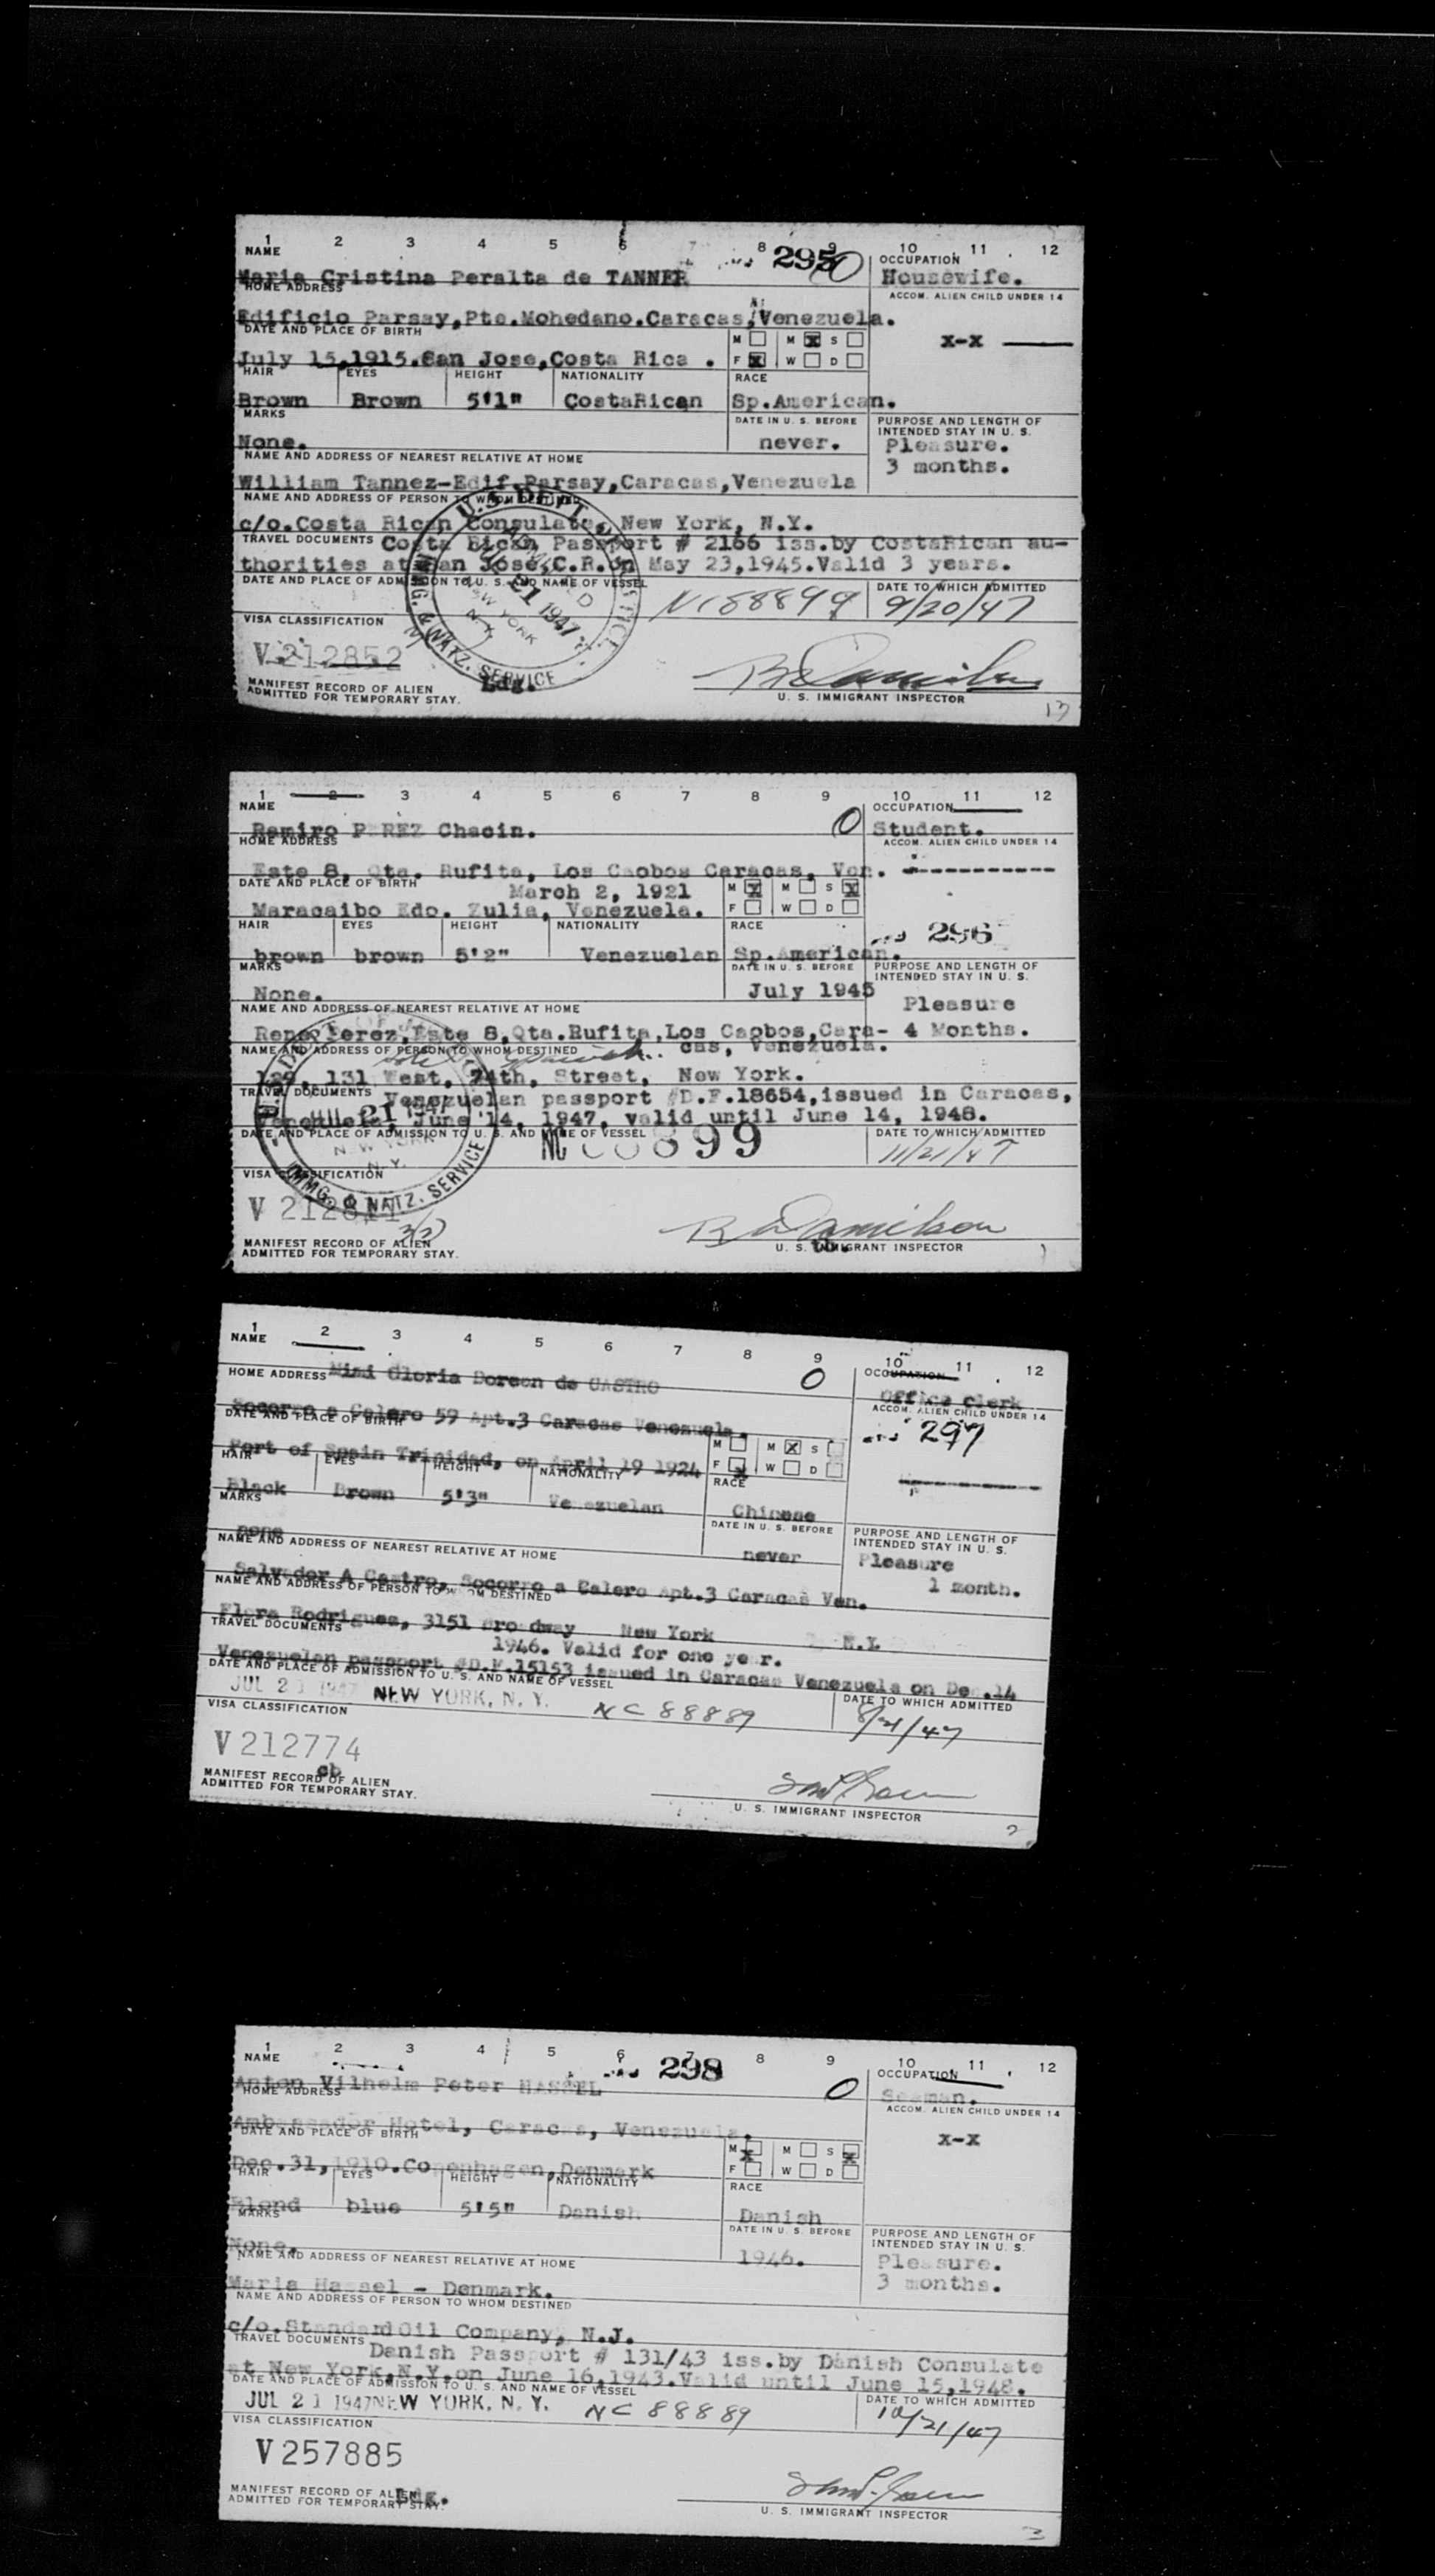 1 2 3 4 5 6 8 9 10 11 12
NAME 2950 OCCUPATION
Maria Cristina Peralta de TANNER Housewife.
HOME ADDRESS ACCOM. ALIEN CHILD UNDER 14
Edificio Parsay,Pte.Mohedano.Caracas,Venezuela.
DATE AND PLACE OF BIRTH M M X S X-X
July 15,1915.San Jose,Costa Rica . F X W D
HAIR EYES HEIGHT NATIONALITY RACE
Brown Brown 5'1" CostaRican Sp.American.
MARKS DATE IN U. S. BEFORE PURPOSE AND LENGTH OF INTENDED STAY IN U. S.
None. never. Pleasure.
3 months.
NAME AND ADDRESS OF NEAREST RELATIVE AT HOME
William Tannez-Edif.Parsay,Caracas,Venezuela
NAME AND ADDRESS OF PERSON TO WHOM DESTINED
c/o.Costa Rican Consulate, New York, N.Y.
TRAVEL DOCUMENTS Costa Rican Passport # 2166 iss.by CostaRican au-
thorities at San Jose,C.R.on May 23,1945.Valid 3 years.
DATE AND PLACE OF ADMISSION TO U. S. AND NAME OF VESSEL DATE TO WHICH ADMITTED
21 1947 NEW YORK N.Y. NC88899 9/20/47
IMMG. & NATZ. SERVICE
VISA CLASSIFICATION
V 212852
MANIFEST RECORD OF ALIEN
ADMITTED FOR TEMPORARY STAY. Ldg. U. S. IMMIGRANT INSPECTOR
13
1 2 3 4 5 6 7 8 9 10 11 12
NAME OCCUPATION
Ramiro PEREZ Chacin. 0 Student.
HOME ADDRESS ACCOM. ALIEN CHILD UNDER 14
Este 8, Qta. Rufita, Los Caobos Caracas, Ven.
DATE AND PLACE OF BIRTH March 2, 1921 M X M S X
Maracaibo Edo. Zulia, Venezuela. F W D
HAIR EYES HEIGHT NATIONALITY RACE 296
brown brown 5'2" Venezuelan Sp.American.
MARKS DATE IN U. S. BEFORE PURPOSE AND LENGTH OF INTENDED STAY IN U. S.
None. July 1945 Pleasure
NAME AND ADDRESS OF NEAREST RELATIVE AT HOME
Rene Perez,Este 8,Qta.Rufita,Los Caobos,Cara- 4 Months.
NAME AND ADDRESS OF PERSON TO WHOM DESTINED cas, Venezuela.
129, 131 West, 74th, Street, New York.
TRAVEL DOCUMENTS Venezuelan passport #D.F.18654,issued in Caracas,
Venezuela, June 14, 1947, valid until June 14, 1948.
DATE AND PLACE OF ADMISSION TO U. S. AND NAME OF VESSEL DATE TO WHICH ADMITTED
JUL 21 1947 NEW YORK N.Y. 11/21/47
IMMG. & NATZ. SERVICE
VISA CLASSIFICATION
MANIFEST RECORD OF ALIEN
ADMITTED FOR TEMPORARY STAY. U. S. IMMIGRANT INSPECTOR
1 2 3 4 5 6 7 8 9 10 11 12
NAME OCCUPATION
HOME ADDRESS Mimi Gloria Doreen de CASTRO 0 Office clerk
ACCOM. ALIEN CHILD UNDER 14
Socorro a Calero 59 Apt.3 Caracas Venezuela. 297
DATE AND PLACE OF BIRTH M M X S
Port of Spain Trinidad, on April 19 1924 F X W D
HAIR EYES HEIGHT NATIONALITY RACE
Black Brown 5'3" Venezuelan Chinese
MARKS DATE IN U. S. BEFORE PURPOSE AND LENGTH OF INTENDED STAY IN U. S.
none never Pleasure
NAME AND ADDRESS OF NEAREST RELATIVE AT HOME 1 month.
Salvador A Castro, Socorro a Calero Apt.3 Caracas Ven.
NAME AND ADDRESS OF PERSON TO WHOM DESTINED
Flora Rodriguez, 3151 Broadway New York N.Y.
TRAVEL DOCUMENTS 1946. Valid for one year.
Venezuelan passport #D.F.15153 issued in Caracas Venezuela on Dec.14
DATE AND PLACE OF ADMISSION TO U. S. AND NAME OF VESSEL DATE TO WHICH ADMITTED
JUL 21 1947 NEW YORK, N. Y. NC 88889 8/21/47
VISA CLASSIFICATION
V 212774
cb
MANIFEST RECORD OF ALIEN
ADMITTED FOR TEMPORARY STAY. U. S. IMMIGRANT INSPECTOR
2
1 2 3 4 5 6 7 8 9 10 11 12
NAME 298 OCCUPATION
Anton Vilhelm Peter HASSEL 0 Seaman.
HOME ADDRESS ACCOM. ALIEN CHILD UNDER 14
Ambassador Hotel, Caracas, Venezuela. X-X
DATE AND PLACE OF BIRTH M X M S X
Dec.31,1910.Copenhagen,Denmark F W D
HAIR EYES HEIGHT NATIONALITY RACE
Blond blue 5'5" Danish Danish
MARKS DATE IN U. S. BEFORE PURPOSE AND LENGTH OF INTENDED STAY IN U. S.
None. 1946. Pleasure.
NAME AND ADDRESS OF NEAREST RELATIVE AT HOME 3 months.
Maria Hassel - Denmark.
NAME AND ADDRESS OF PERSON TO WHOM DESTINED
c/o.Standard Oil Company, N.J.
TRAVEL DOCUMENTS Danish Passport # 131/43 iss.by Danish Consulate
at New York,N.Y.on June 16,1943.Valid until June 15,1948.
DATE AND PLACE OF ADMISSION TO U. S. AND NAME OF VESSEL DATE TO WHICH ADMITTED
JUL 21 1947 NEW YORK, N. Y. NC 88889 10/21/47
VISA CLASSIFICATION
V 257885
MANIFEST RECORD OF ALIEN
ADMITTED FOR TEMPORARY STAY. Ldg. U. S. IMMIGRANT INSPECTOR
3